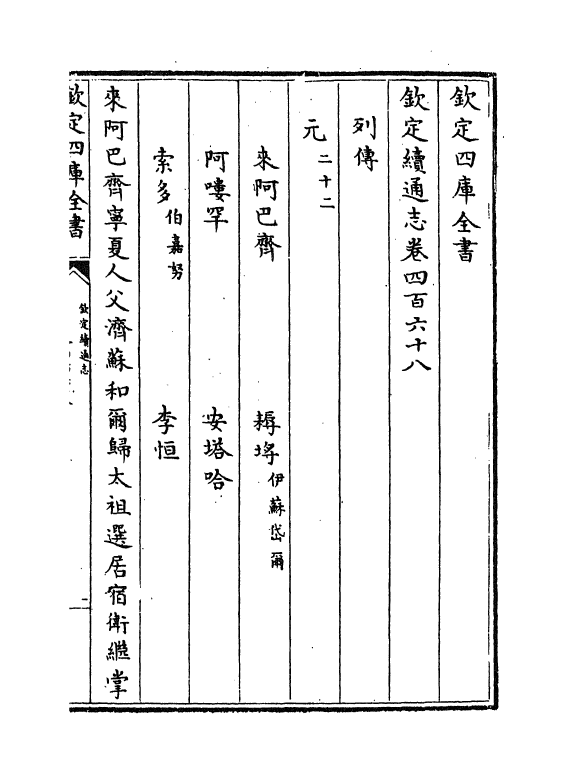 欽定四庫全書
欽定續通志卷四百六十八
列傳
元二十二
來阿巴齊 耨埒伊蘇岱爾
阿嘍罕 安塔哈
索多伯嘉努 李恒
來阿巴齊寧夏人父濟蘇和爾歸太祖選居宿衛繼掌
欽定四庫全書
欽定續通志